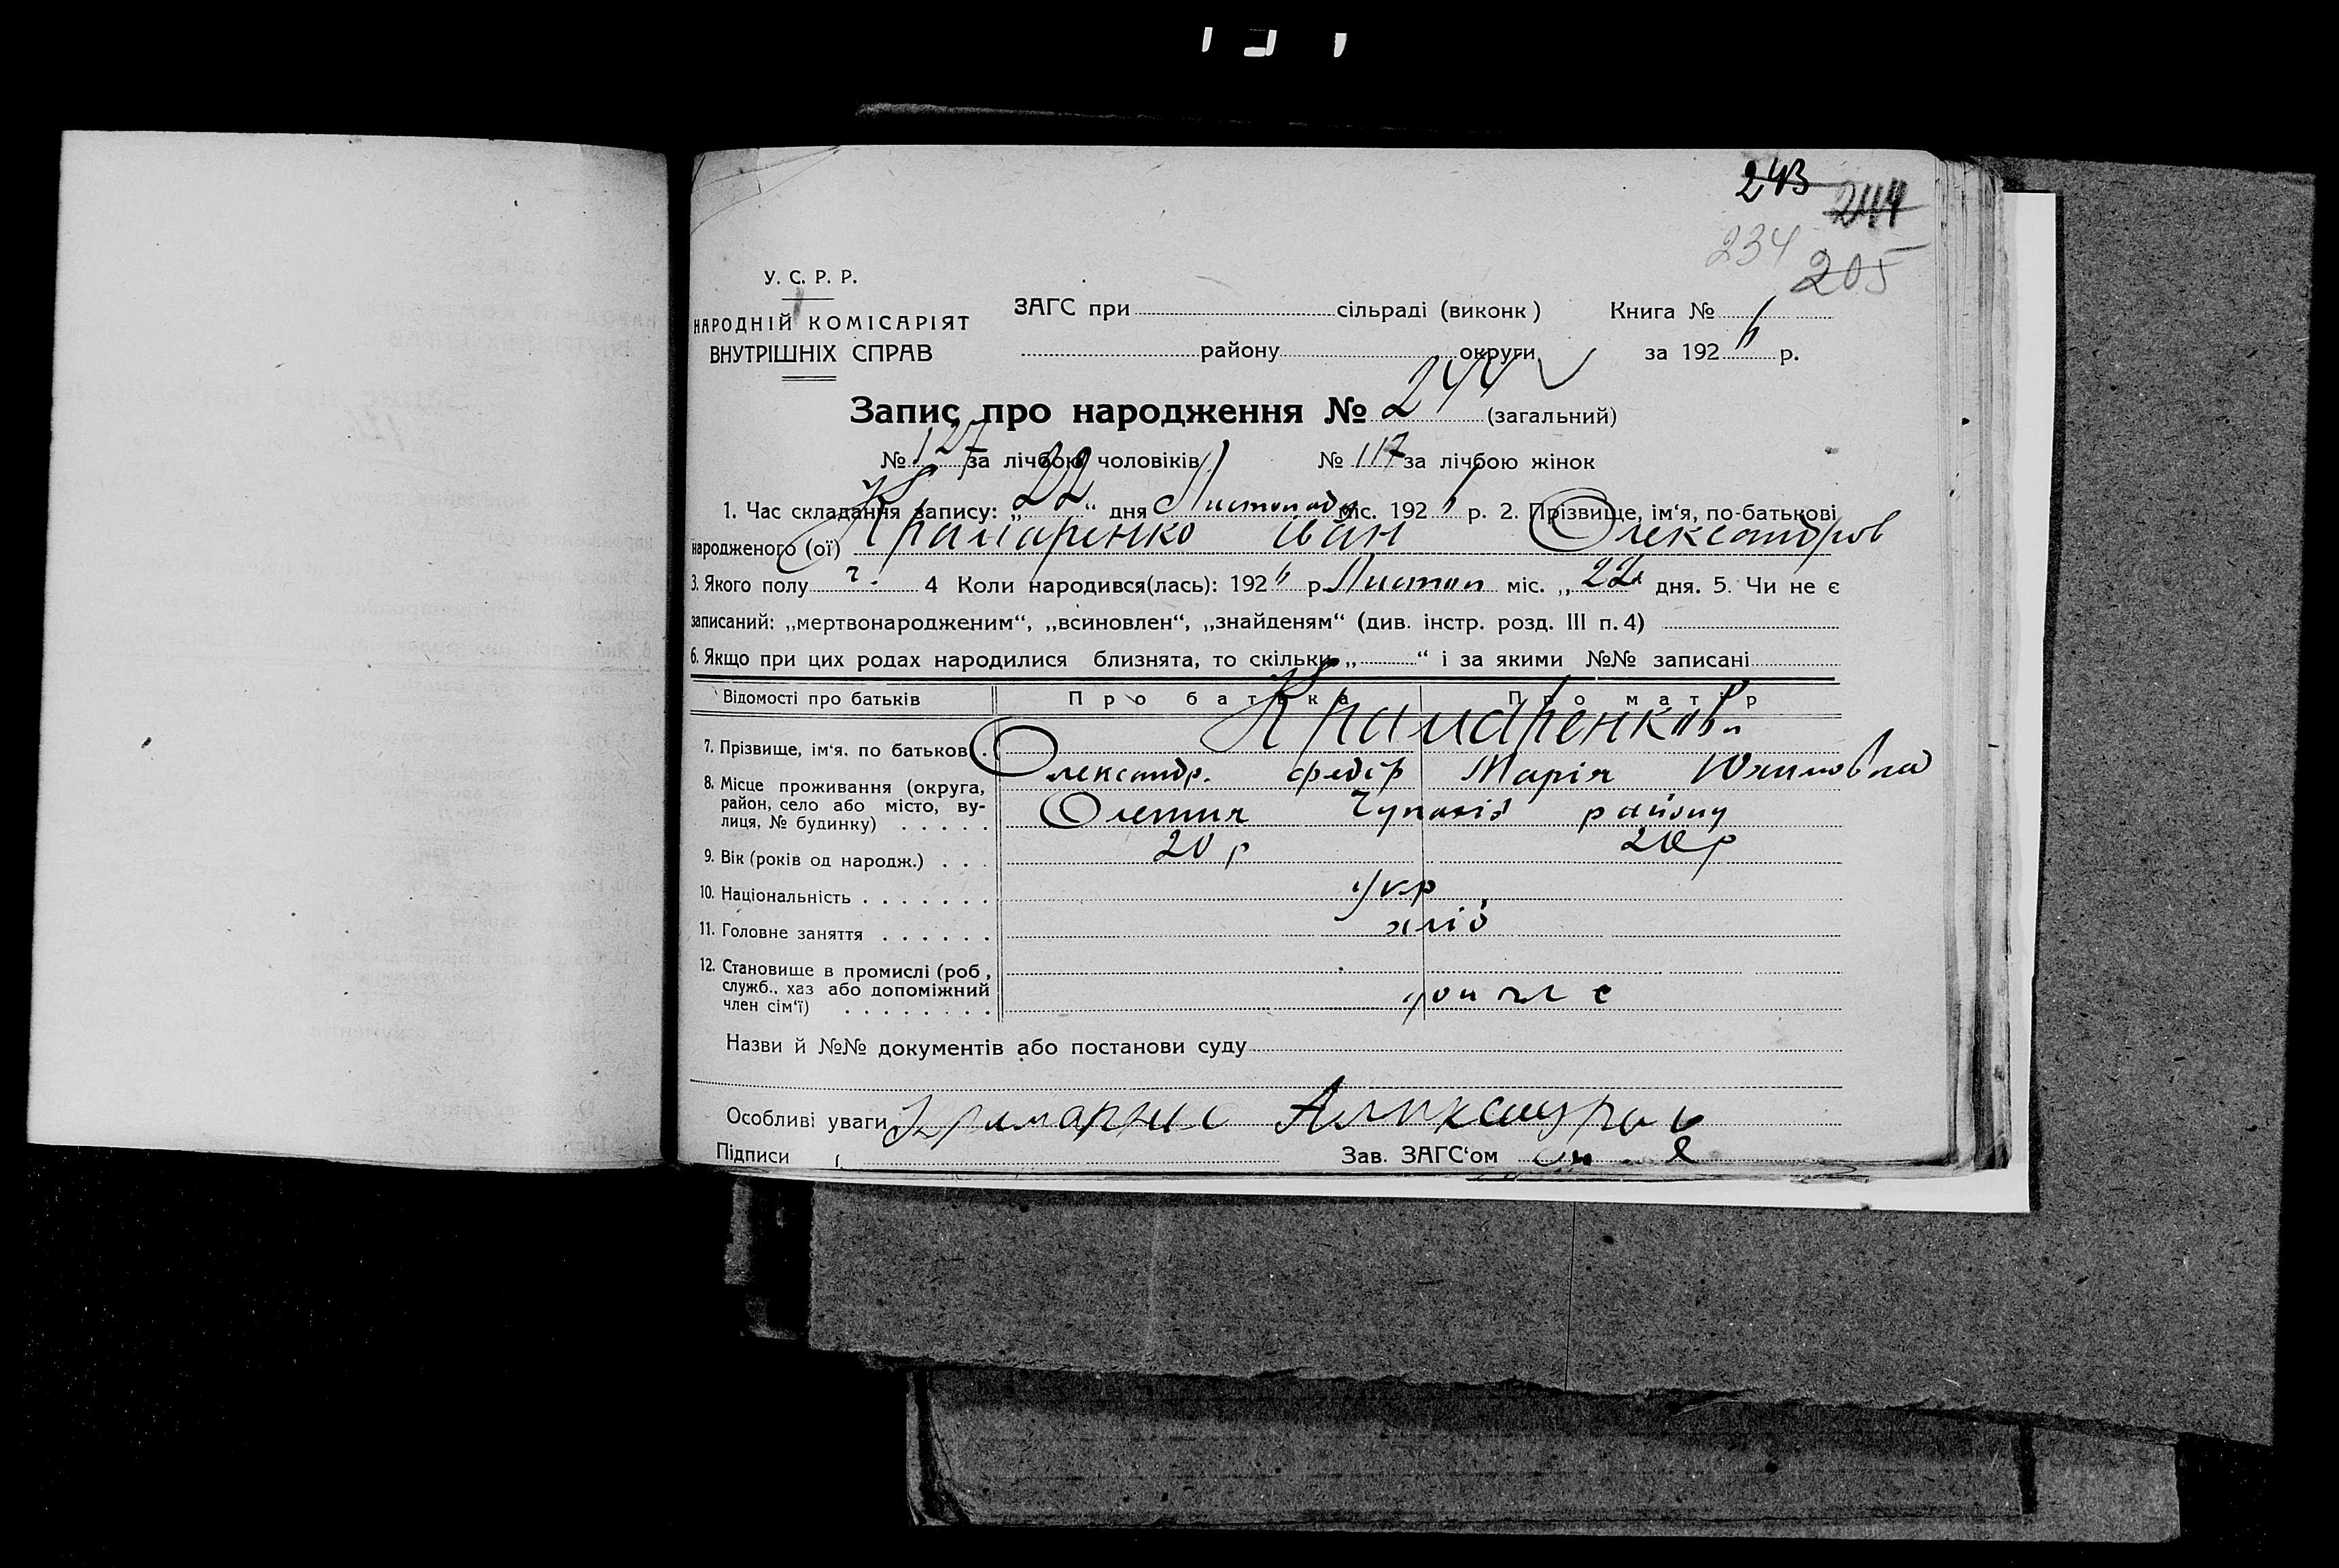 243
244
234
205
У. С. Р. Р.
НАРОДНІЙ КОМІСАРІЯТ
ВНУТРІШНІХ СПРАВ
ЗАГС при сільраді (виконк)
Книга №
району округи за 192 р.
Запис про народження № 244 (загальний)
№ 127 за лічбою чоловіків № 117 за лічбою жінок
1. Час складання запису: „22“ дня Листопада міс. 192 р. 2. Прізвище, ім‘я, по-батькові
народженого (ої) Крамаренко Іван Олександров
3. Якого полу ч. 4 Коли народився(лась): 192 р. Листоп міс. „22 дня. 5. Чи не є
записаний: „мертвонародженим“, „всиновлен“, „знайденям“ (див. інстр. розд. III п. 4)
6. Якщо при цих родах народилися близнята, то скільки „ “ і за якими №№ записані
Відомості про батьків Про батька Про матір
Крамаренкови
7. Прізвище, ім‘я. по батьков .
Олександр. Федір Марія Юхимовна
8. Місце проживання (округа, район, село або місто, вулиця, № будинку) . . . . .
району
9. Вік (років од народж.) . . . 20 р 20 р
10. Національність . . . . . . . укр
11. Головне заняття . . . . . . хліб
12. Становище в промислі (роб, служб.. хаз або допоміжний член сім‘ї) . . . . . . . .
Назви й №№ документів або постанови суду
Особливі уваги
Підписи Зав. ЗАГС‘ом